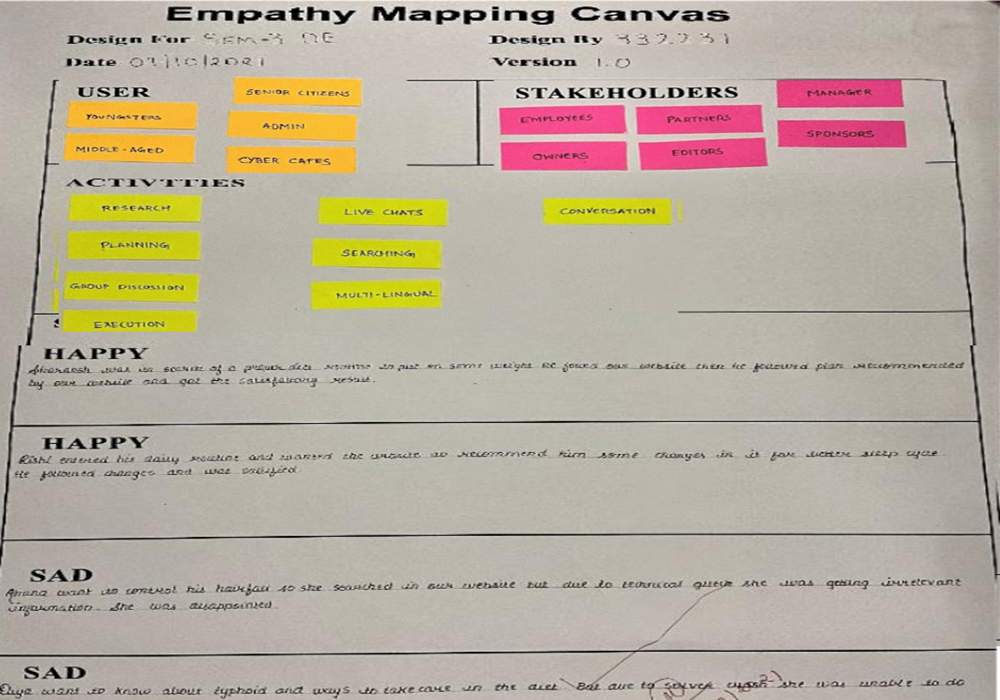 Empathy Mapping Canvas
Design For SEM-3 DE
Design By 332231
Date 07/10/2021
Version 1.0
USER
SENIOR CITIZENS
YOUNGSTERS
ADMIN
MIDDLE-AGED
CYBER CAFES
STAKEHOLDERS
MANAGER
EMPLOYEES
PARTNERS
SPONSORS
OWNERS
EDITORS
ACTIVITIES
RESEARCH
LIVE CHATS
CONVERSATION
PLANNING
SEARCHING
GROUP DISCUSSION
MULTI-LINGUAL
EXECUTION
HAPPY
was in search of a proper diet to put on some weight he found our website then he followed plan recommended
by our website and got the satisfactory result.
HAPPY
Rishi entered his daily routine and wanted the website to recommend him some changes in it for better sleep cycle.
He followed changes and was satisfied.
SAD
want to control his hairfall so she searched in our website but due to technical she was getting irrelevant
information. She was disappointed.
SAD
Diya want to know about typhoid and ways to take care in the diet But due to server crash she was unable to do